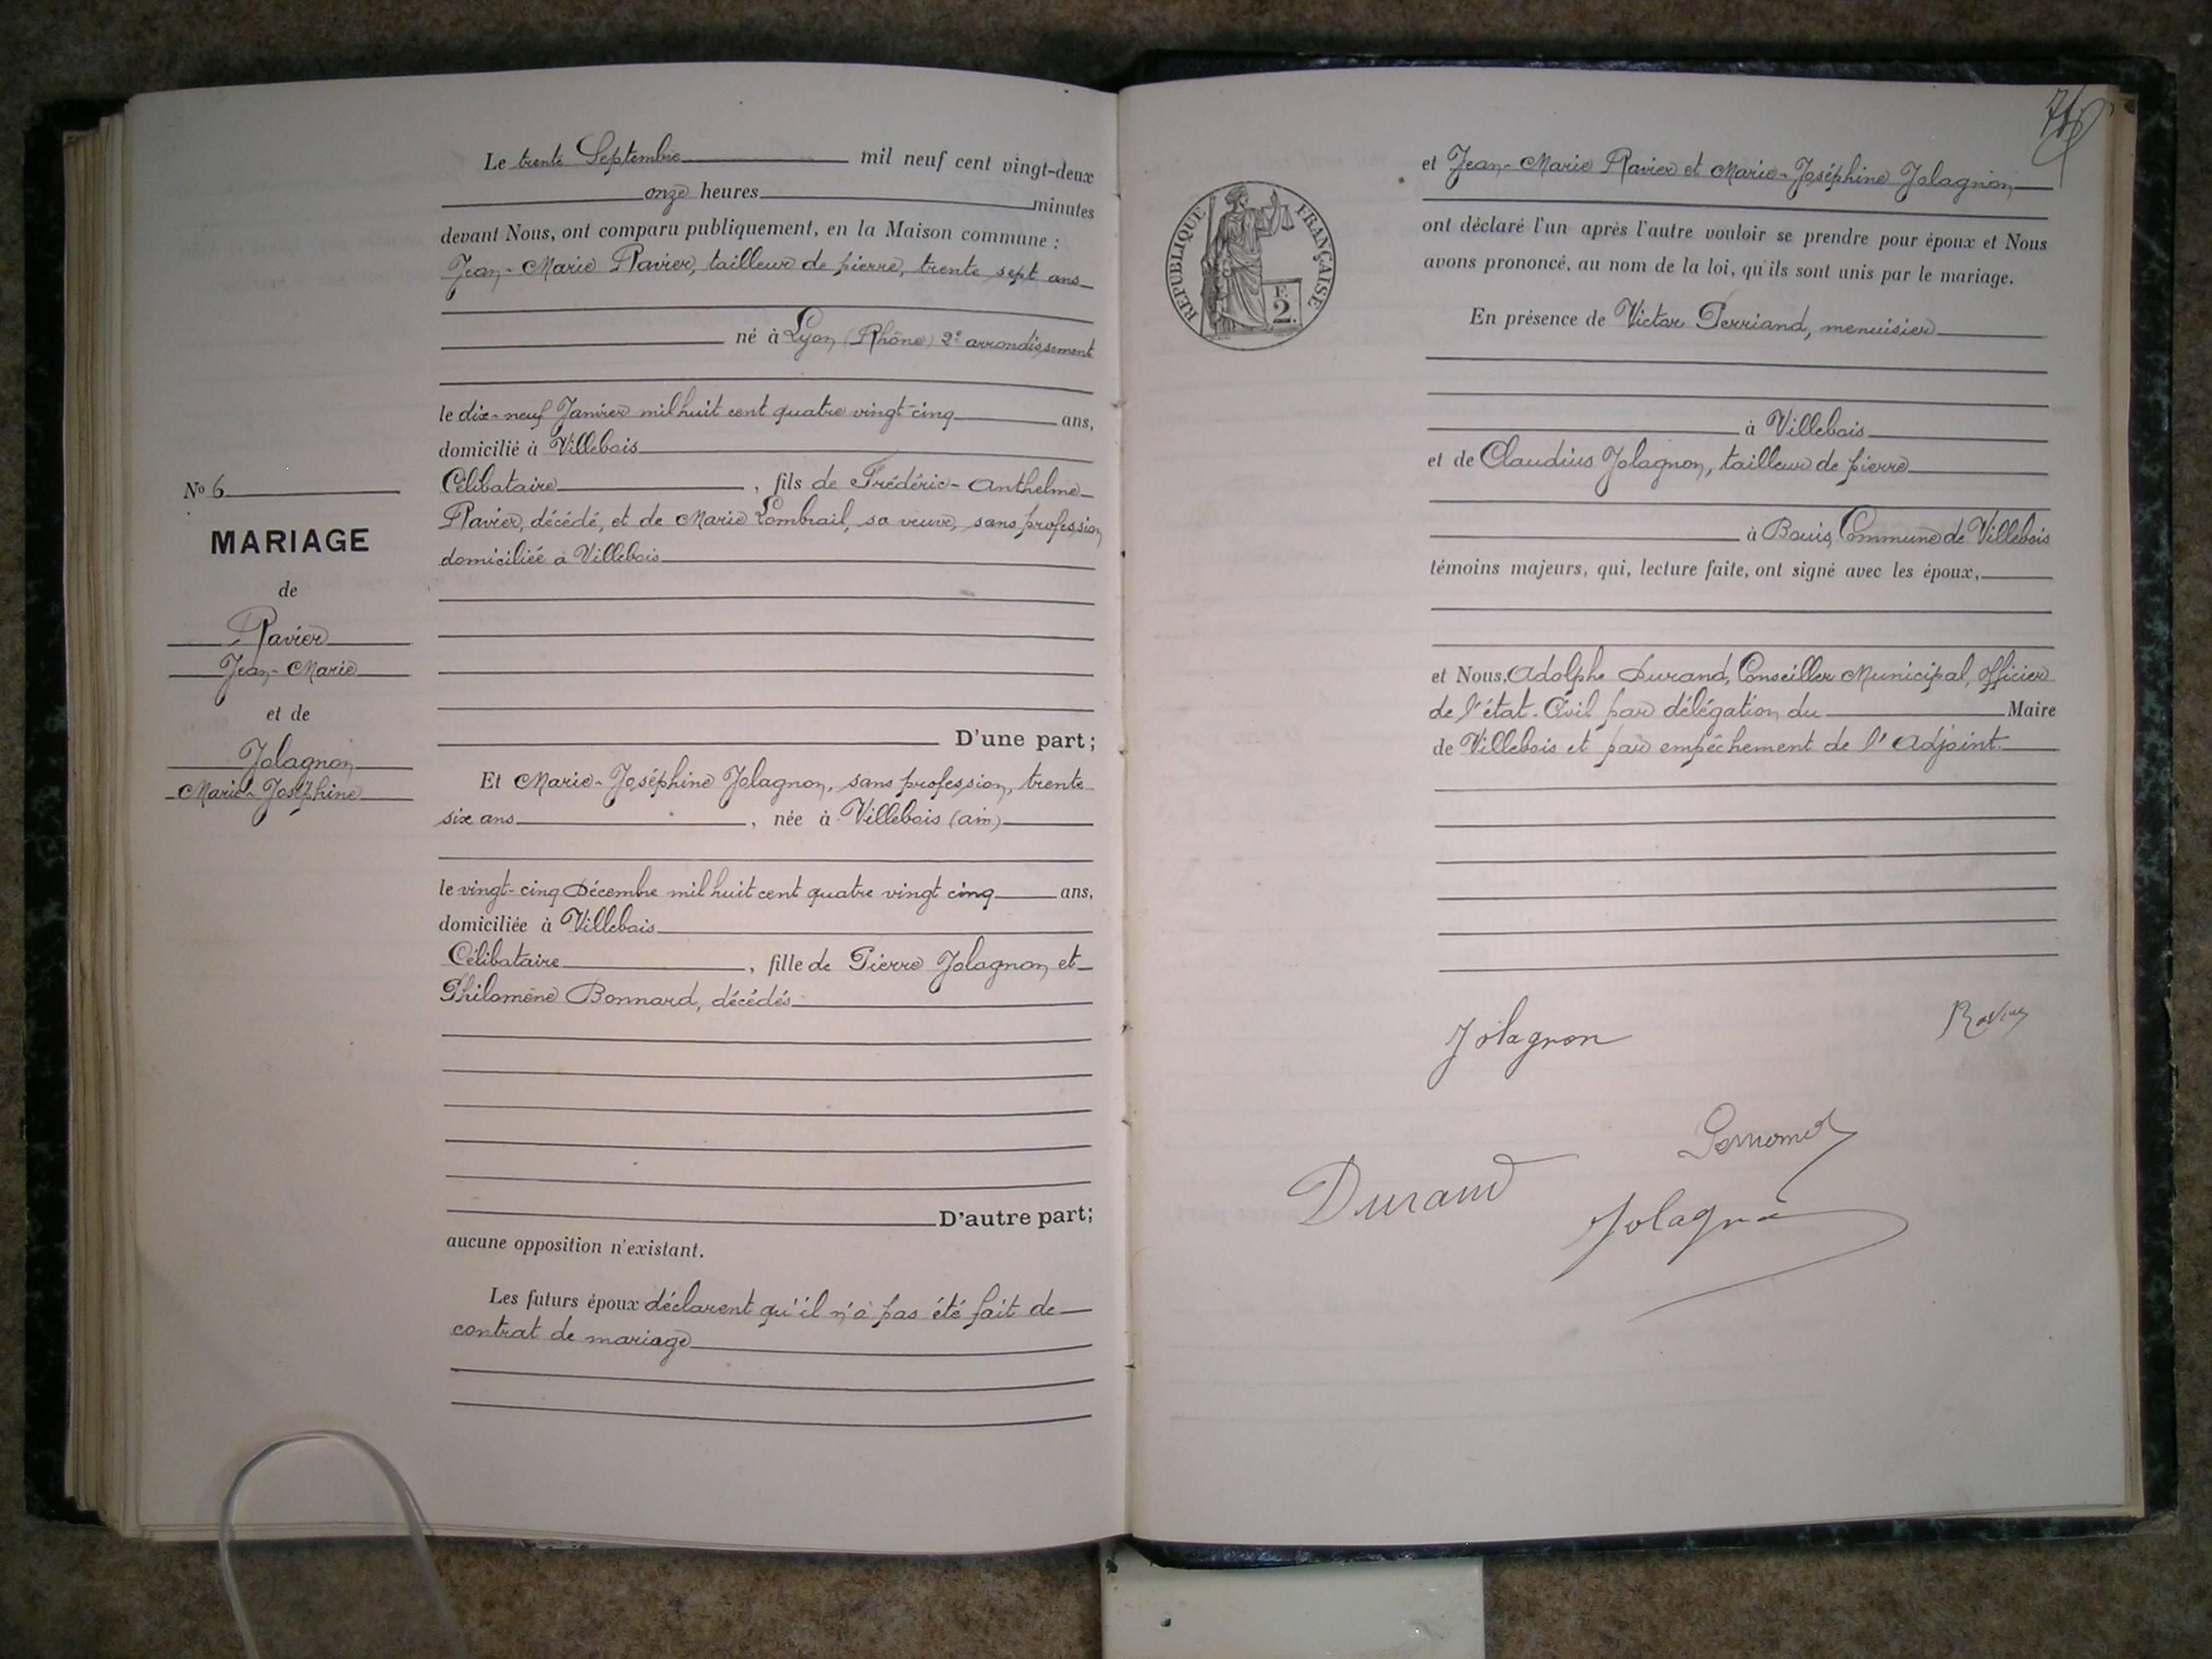 Le trente Septembre mil neuf cent vingt-deux
onze heures minutes
devant Nous, ont comparu publiquement, en la Maison commune :
Jean-Marie Ravier, tailleur de pierre, trente sept ans
né à Lyon (Rhône) 2e arrondissement
le dix-neuf Janvier mil huit cent quatre vingt-cinq ans,
domicilié à Villebois
Célibataire, fils de Frédéric-Anthelme
Ravier, décédé, et de Marie Lombrail, sa veuve, sans profession
domiciliée à Villebois
No 6
MARIAGE
de
Ravier
Jean-Marie
et de
Jolagnon
Marie-Joséphine
D'une part;
Et Marie-Joséphine Jolagnon, sans profession, trente
six ans, née à Villebois (ain)
le vingt-cinq Décembre mil huit cent quatre vingt cinq ans,
domiciliée à Villebois
Célibataire, fille de Pierre Jolagnon et
Philomène Bonnard, décédés
D'autre part;
aucune opposition n'existant.
Les futurs époux déclarent qu'il n'a pas été fait de
contrat de mariage
et Jean-Marie Ravier et Marie-Joséphine Jolagnon
ont déclaré l'un après l'autre vouloir se prendre pour époux et Nous
avons prononcé, au nom de la loi, qu'ils sont unis par le mariage.
RÉPUBLIQUE FRANÇAISE
F.
2.
En présence de Victor Perriand, menuisier
à Villebois
et de Claudius Jolagnon, tailleur de pierre
à Bouis, Commune de Villebois
témoins majeurs, qui, lecture faite, ont signé avec les époux,
et Nous, Adolphe Durand, Conseiller Municipal, officier
de l'état-Civil par délégation du Maire
de Villebois et par empêchement de l'Adjoint.
Jolagnon
Ravier
Durand
Jolagnon